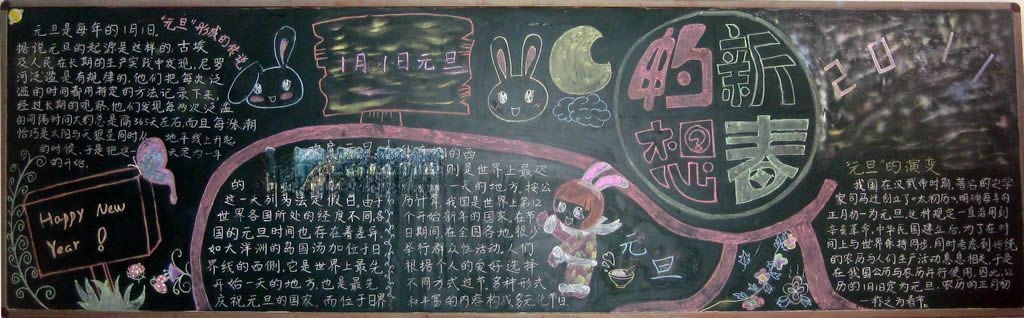 "元旦"形成的传说
元旦是每年的1月1日。
据说元旦的起源是这样的,古埃
及人民在长期的生产实践中发现,尼罗
河泛滥是有规律的,他们把每次泛
滥的时间都用特定的方法记录下来,
经过长期的观察,他们发现每两次泛滥
的间隔时间大约总是隔365天左右,而且每涨潮
恰巧是太阳与天狼星同时从 地平线上升起
的时候,于是把这一天定为一年
的开始.
Happy New
Year !
1月1日元旦
新春
的
想
201
的 则是世界上最迟
这一天列为法定假日.由于
世界各国所处的经度不同,各
国的元旦时间也存在着差异,
如大洋洲的岛国汤加位于日
界线的西侧,它是世界上最先
开始一天的地方,也是最先
庆祝元旦的国家,而位于日界
一天的地方,按公
历计算,我国是世界上第12
个开始新年的国家.在节
日期间在全国各地,很少
举行群众性活动.人们
根据个人的爱好选择
不同方式过节,多种形式
和丰富的内容构成多元化节日.
元旦
"元旦"的演变
我国在汉武帝时期,著名的史学
家司马迁创立了"太初历",明确每年的
正月初一为元旦,这种规定一直沿用到
辛亥革命,中华民国建立后,为了在时
间上与世界保持同步,同时考虑到传统
的农历与人们生产活动息息相关,于是
在我国公历与农历并行使用,因此,公
历的1月1日定为元旦,农历的正月初
一称之为春节.